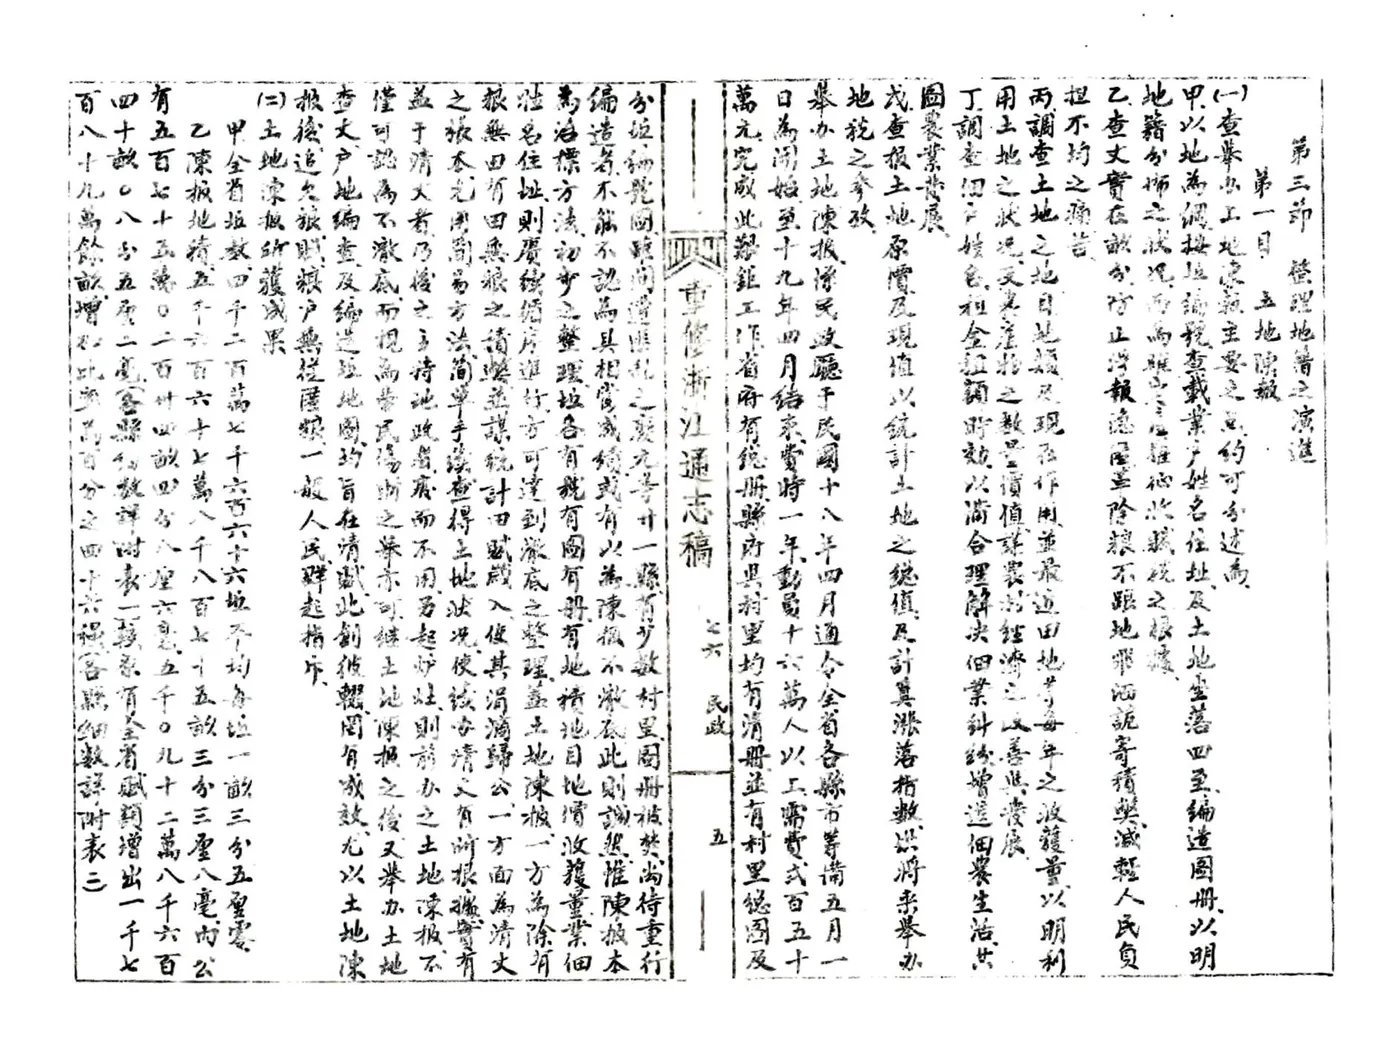 第三節 整理地籍之演進
第一目 土地陳報
(一)查舉办土地陳報主要之点約可分述為
甲、以地為綱按坵編號查載業户姓名住址及土地坐落四至編造圖册以明
地籍分佈之狀况而為確定產權征收賦稅之根據
乙、查丈實在畝分防止浮報隱匿並除粮不跟地飛洒詭寄積獘減輕人民負
担不均之痛苦
丙、調查土地之地目地類及現在作用並最近田地等每年之收穫量以明利
用土地之狀况又農產物之數量價值謀農村經濟之改善與發展
丁、調查佃户姓名租金租額時効以滿合理解决佃業糾纷增進佃農生活共
圖農業發展
戊、查报土地原價及現值以統計土地之總值及計算漲落指數以將來舉办
地税之参攷
舉办土地陳报係民政廳于民國十八年四月通令全省各縣市籌備五月一
日為開始至十九年四月結束費時一年動員十六萬人以上需費弍百五十
萬元完成此艱鉅工作省府有總册縣府與村里均有清册並有村里總圖及
重修浙江通志稿 七六 民政 五
分坵編號圖雖間遭匪乱之 九等廿一縣有少數村里圖册被焚尚待重行
編造者不能不認為具相當成績或有以為陳报不澈底此則誠然惟陳报本
為治標方法初步之整理坵各有號有圖有册有地積地目地價收穫量業佃
姓名住址則賡續循序進行方可達到澈底之整理蓋土地陳报一方為除有
粮無田有田無粮之積獘並謀統計田賦歲入使其涓滴歸公一方面為清丈
之根本先用簡易方法簡單手續查得土地狀况使續办清丈有所根據實有
益于清丈者乃後之主持地政者廢而不用另起炉灶則前办之土地陳报不
僅可認為不澈底而視為勞民傷財之舉亦可继土地陳报之後又舉办土地
查丈户地編查及編造坵地圖均旨在清賦此創彼輟罔有成效尤以土地陳
报後追欠粮賦粮户無從匯類一般人民群起指斥
(二)土地陳报所獲成果
甲、全省坵数四千二百萬七千六百六十六坵平均每坵一畝三分五厘零
乙、陳报地積五千六百六十七萬八千八百七十五畝三分三厘八毫内公
有五百七十五萬〇二百廿四畝四分八厘六毫五千〇九十二萬八千六百
四十畝〇八分五厘二毫(各縣細数詳附表一)較原有全省賦額增出一千七
百八十九萬餘畝增加比率為百分之四十六强各縣細数詳附表二